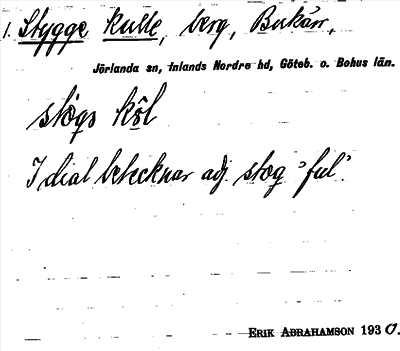 1. Stygge kulle, berg, Bukärr,
Jörlanda sn, Inlands Nordre hd, Göteb. o. Bohus län.
støgə kɵ̂l
I dial betecknar adj støg 'ful'.
ERIK ABRAHAMSON 1930.